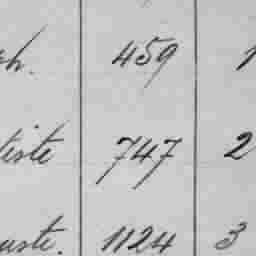 ph. 459 1
tiste 747 2
uste. 1124 3